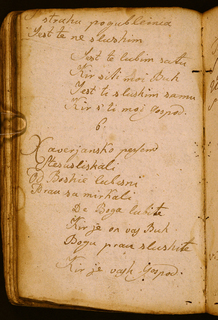 strahu pogubleinia
Jest te ne slushim
Jest te lubim samu
Kir si ti moi Buh
Jest ti slushim samu
Kir si ti moj Gospod.
6.
Xaverjansko pejsem
Od Boshie lubesni
Prau sa mirkali
De Boga lubite
Kir je on vaj Buh
Bogu prau slushite
Kir je vash Gospod.